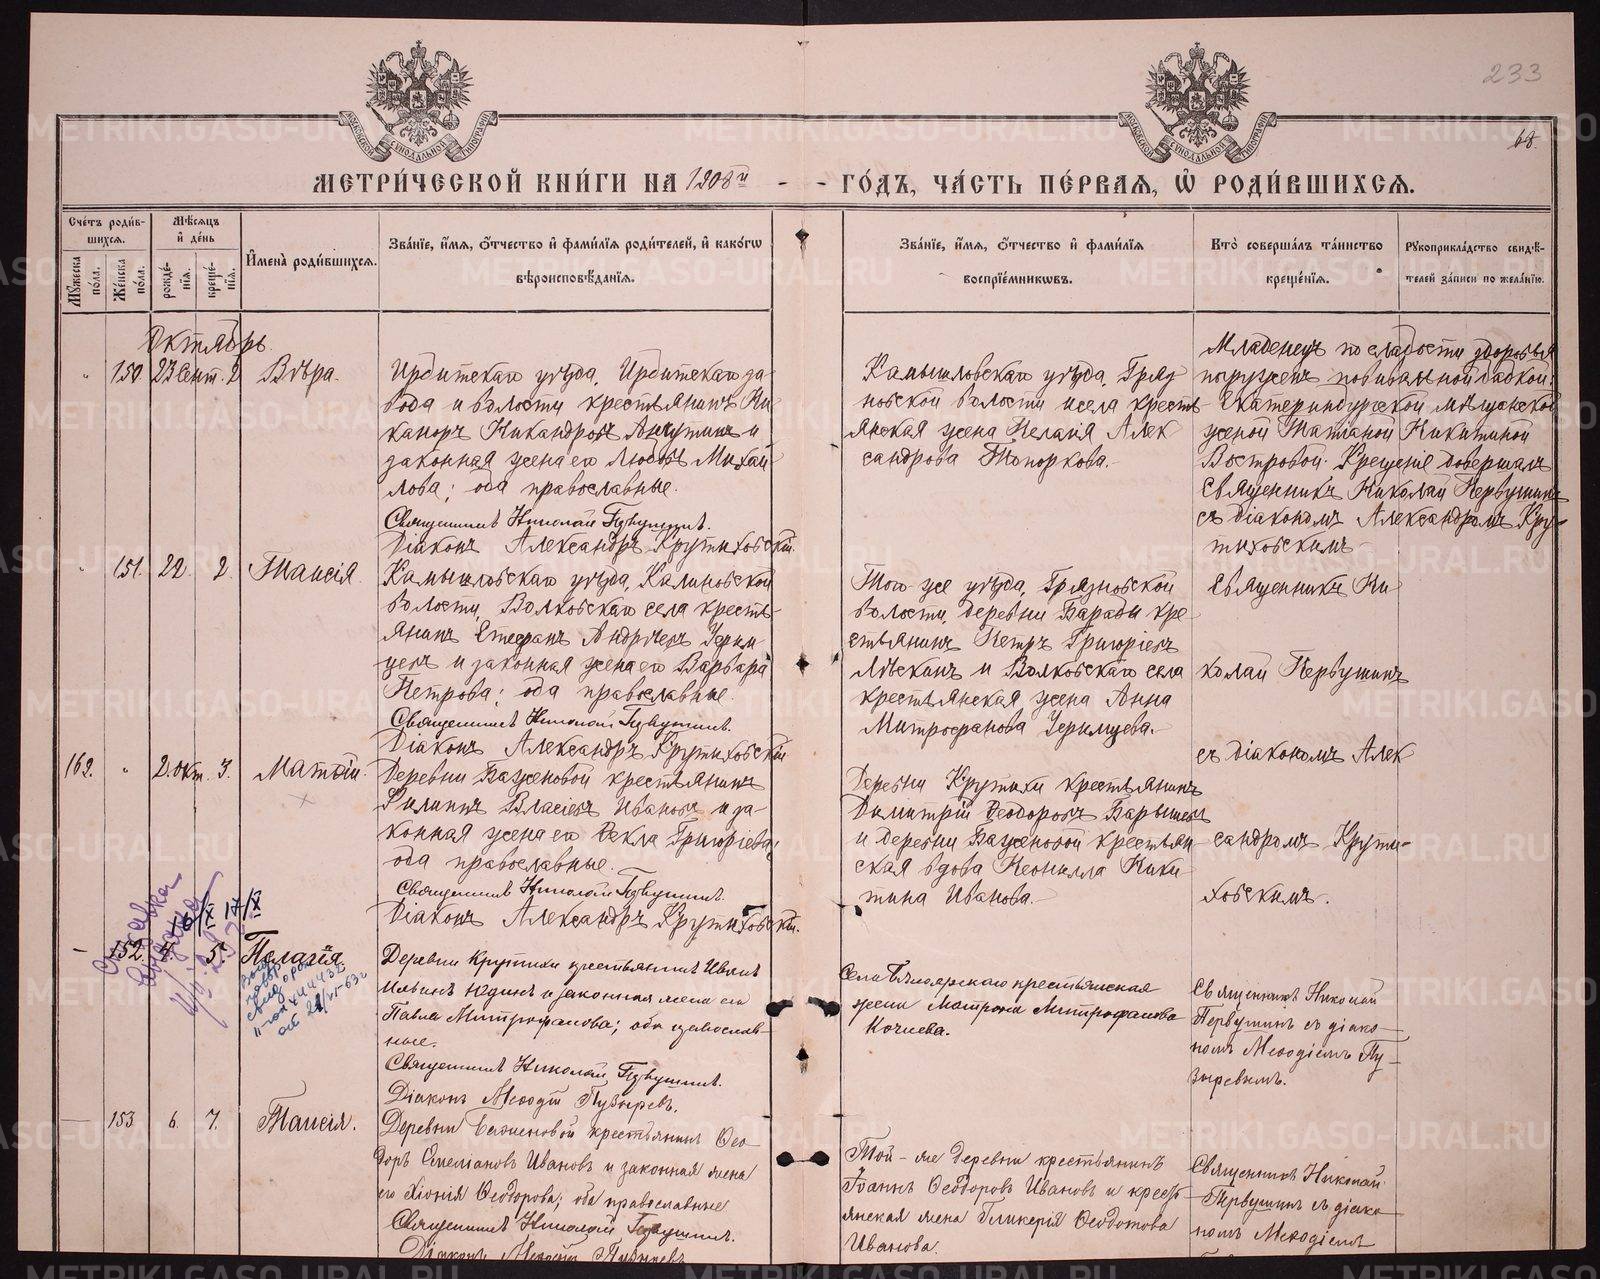 233
68
МЕТРИ́ЧЕСКОЙ КНИ́ГИ НА 1908й - - ГО́ДЪ, ЧА́СТЬ ПЕ́РВАЯ, Ѡ҆ РОДИ́ВШИХСЯ.
Сче́тъ роди́в-
шихся.
Му́жеска по́ла.
Же́нска по́ла.
Мѣ́сяцъ
и҆ де́нь
рожде́-
нїя.
креще́-
нїя.
И҆мена̀ роди́вшихся.
Зва́нїе, и҆́мя, ѻ҆́тчество и҆ фами́лїя роди́телей, и҆ како́гѡ
вѣроисповѣ́данїя.
Зва́нїе, и҆́мя, ѻ҆́тчество и҆ фами́лїя
воспрїе́мникѡвъ.
Кто̀ соверша́лъ та́инство
креще́нїя.
Рукоприкла́дство свидѣ́-
телей за́писи по жела́нїю.
Октябрь.
150 23 Сент. 2 Вѣра.
Ирбитскаго уѣзда, Ирбитскаго за-
вода и волости крестьянинъ Ни-
каноръ Никандровъ и
законная жена его Любовь Михай-
лова; оба православные.
Священникъ Николай Первушинъ.
Діаконъ Александръ Крутиховскій.
Камышловскаго уѣзда, Гряз-
новской волости и села кресть-
янская жена Пелагія Алек-
сандрова Топоркова.
Младенецъ по слабости здоровья
погруженъ повивальной бабкой:
Екатеринбургской мѣщанской
женой Татіаной Никитиной
Востровой. Крещеніе довершалъ
Священникъ Николай Первушинъ
съ діакономъ Александромъ Кру-
тиховскимъ.
151. 22. 2. Таисія.
Камышловскаго уѣзда, Калиновской
волости, Волковскаго села кресть-
янинъ Стефанъ Андреевъ
и законная жена его Варвара
Петрова; оба православные.
Священникъ Николай Первушинъ.
Діаконъ Александръ Крутиховскій.
Того же уѣзда, Грязновской
волости, деревни кре-
стьянинъ Петръ Григорьевъ
и Волковскаго села
крестьянская жена Анна
Митрофанова
Священникъ Ни-
колай Первушинъ
съ діакономъ Алек-
сандромъ Крути-
ховскимъ.
162. 2. окт. 3. Матѳій.
Деревни Баженовой крестьянинъ
Филиппъ Власіевъ Ивановъ и за-
конная жена его Ѳекла Григоріева;
оба православные.
Священникъ Николай Первушинъ.
Діаконъ Александръ Крутиховскій.
Деревни Крутихи крестьянинъ
Димитрій Ѳеодоровъ
и деревни Баженовой крестьян-
ская вдова Неонилла Ники-
тина Иванова.
— 152. 4. 5. Пелагія
Деревни Крутихи крестьянинъ Иванъ
Ильинъ Юдинъ и законная жена его
Павла Митрофанова; оба православ-
ные.
Священникъ Николай Первушинъ.
Діаконъ Меѳодій Пузыревъ.
Села крестьянская
жена Матрона Митрофанова
Кочнева.
Священникъ Николай
Первушинъ съ діако-
номъ Меѳодіемъ Пу-
зыревымъ.
— 153 6. 7. Таисія.
Деревни Баженовой крестьянинъ Ѳео-
доръ Емеліановъ Ивановъ и законная жена
его Хіонія Ѳеодорова; оба православные
Священникъ Николай Первушинъ.
Діаконъ Меѳодій Пузыревъ
Той-же деревни крестьянинъ
Іоаннъ Ѳеодоровъ Ивановъ и кресть-
янская жена Гликерія Ѳеодотова
Иванова.
Священникъ Николай
Первушинъ съ діако-
номъ Меѳодіемъ